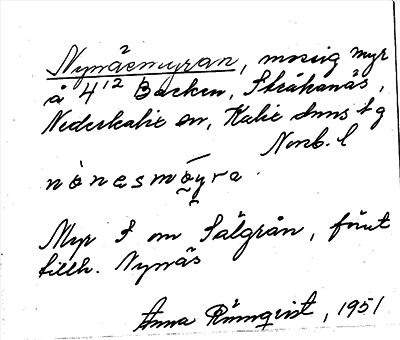 Nynäsmyran, mossig myr
å 4¹² Backen, Stråkanäs,
Nederkalix sn, Kalix tg
Norrb. l
Myr S om Sälgrån, förut
tillh. Nynäs
Anna Rönnqvist, 1951